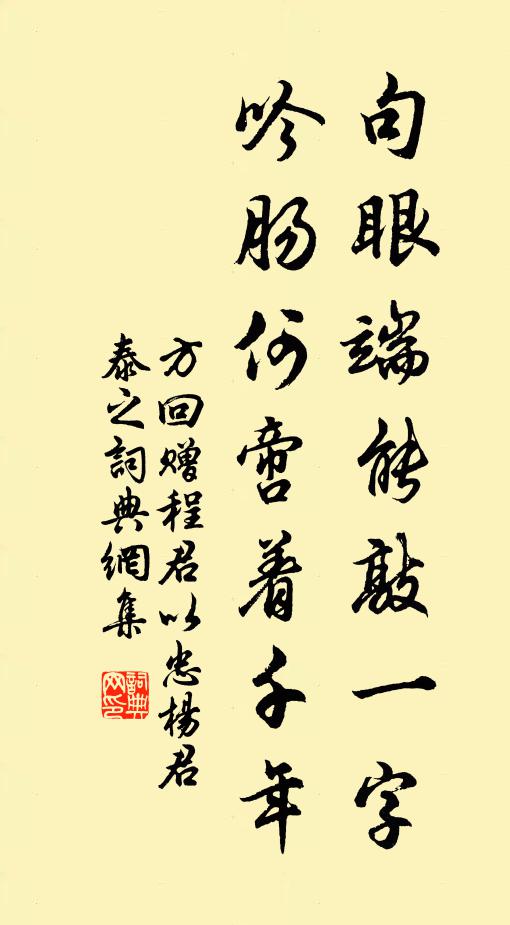 句眼端能敲一字
吟肠何啻着千年
方回赠程君以忠杨君
泰之詞典網集
詞典
网印